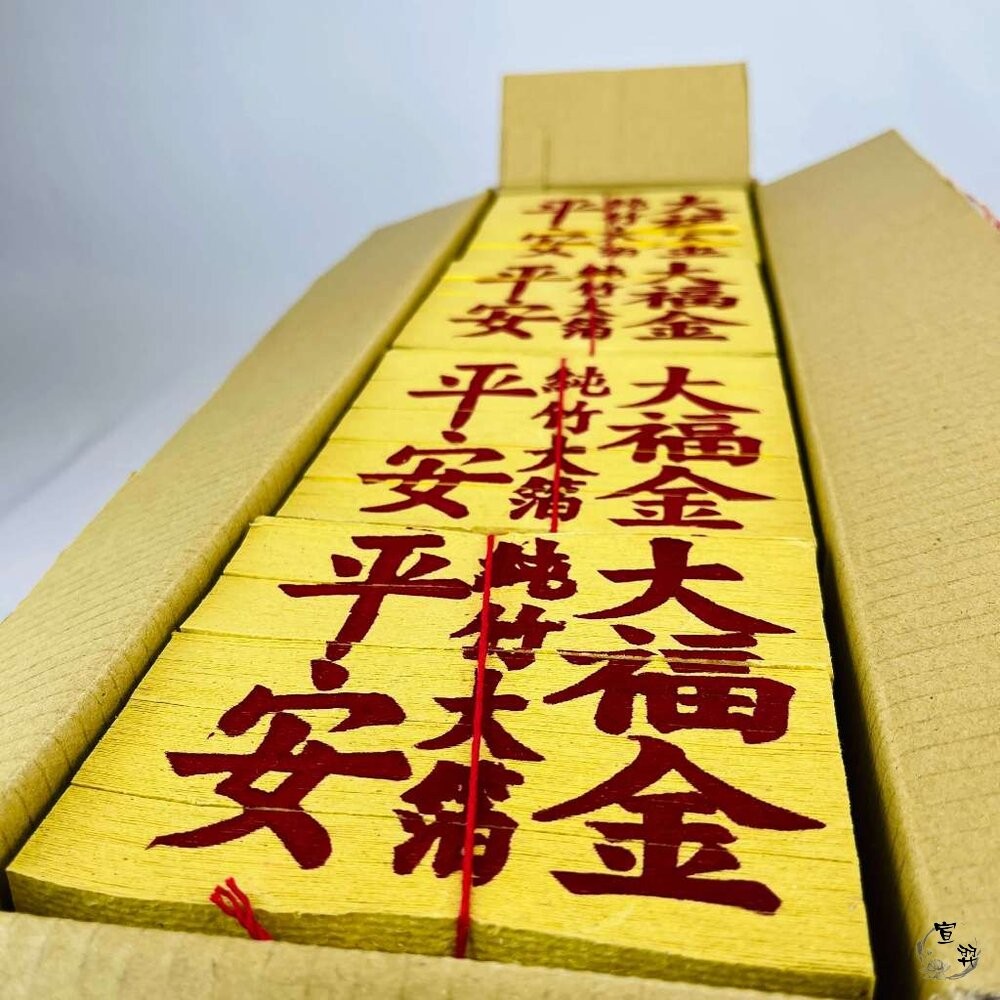 大福金
純竹大箔
平安
大福金
純竹大箔
平安
大福金
純竹大箔
平安
大福金
純竹大箔
平安